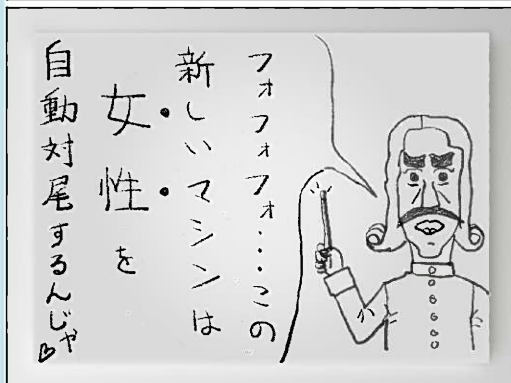 フォフォフォ・・・この
新しいマシンは
女性を
自動対尾するんじゃ♡